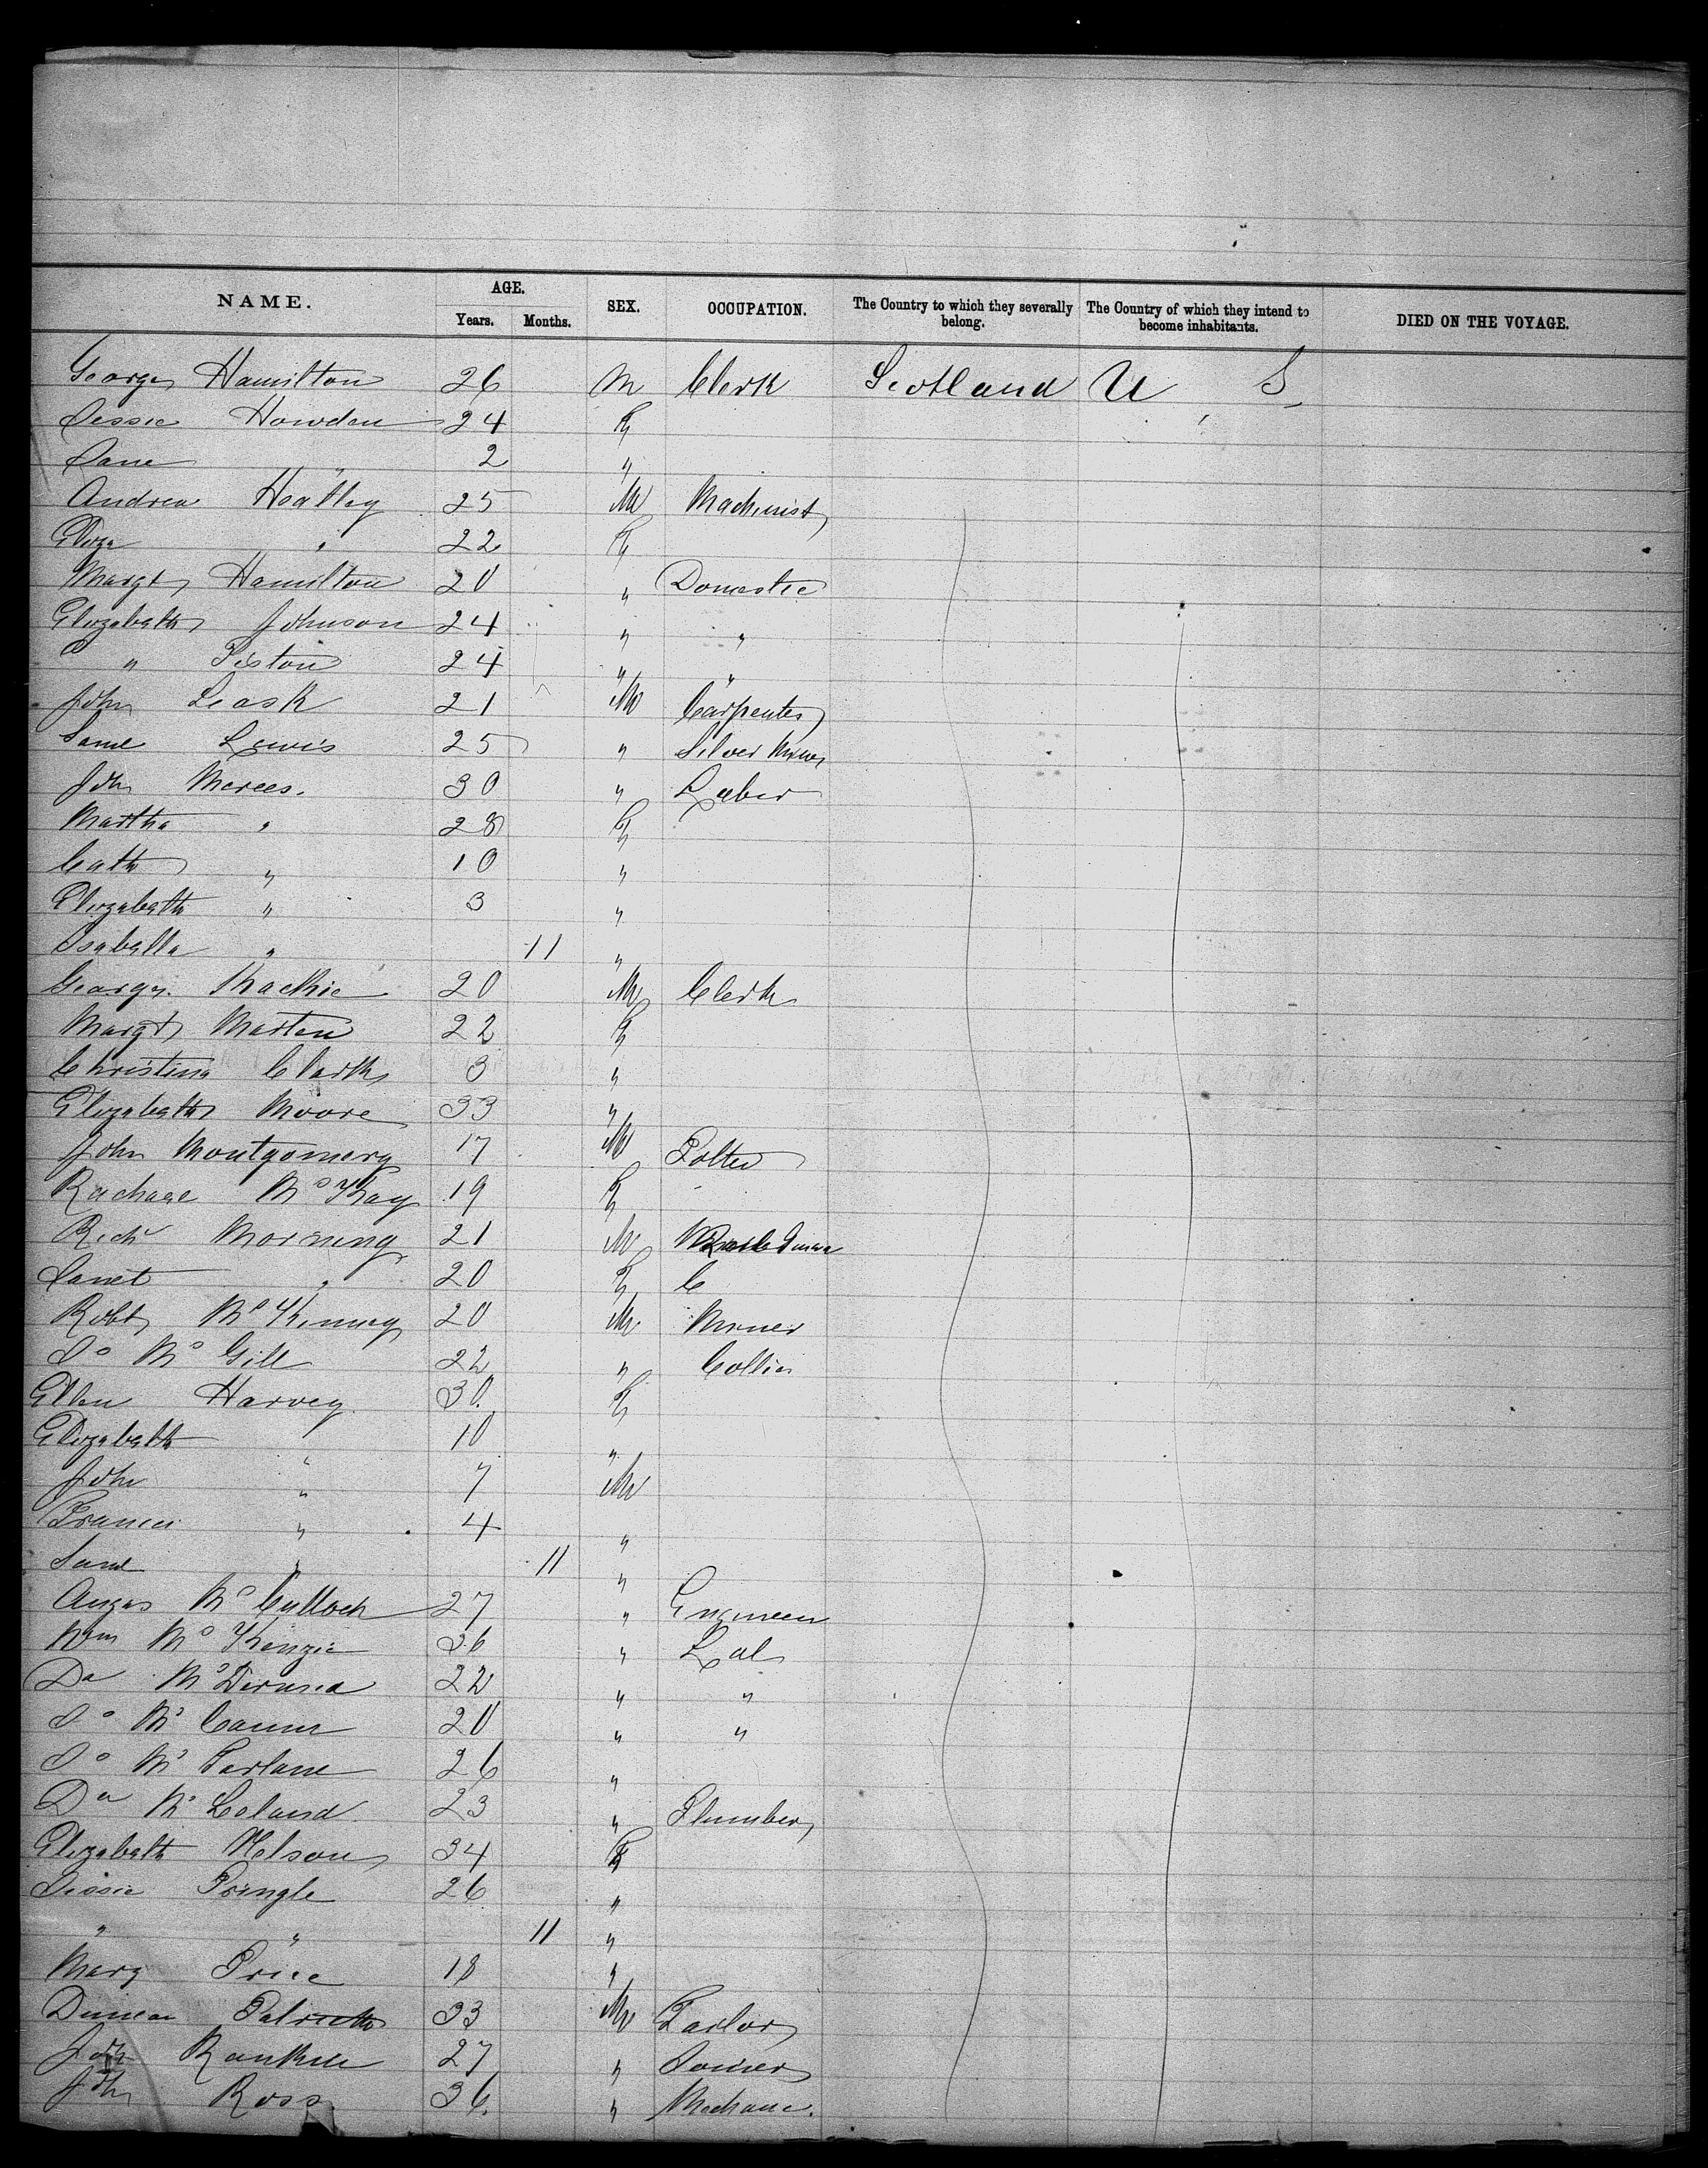 NAME. AGE. SEX. OCCUPATION. The Country to which they severally belong. The Country of which they intend to become inhabitants. DIED ON THE VOYAGE.
Years. Months.
George Hamilton 26 M Clerk Scotland U S
Jessie Howden 24 F
Jane " 2 "
Andrew Heatley 25 M Machinist
Eliza " 22 F
Margt Hamilton 20 " Domestic
Elizabeth Johnson 24 " "
" Piston 24 " "
John Leask 21 M Carpenter
Saml Lewis 25 " Silver Miner
John Merces. 30 " Labor
Martha " 28 F
Cath " 10 "
Elizabeth " 3 "
Isabella " 11 "
George Mackie 20 M Clerk
Margt Marten 22 F
Christina Clark 3 "
Elizabeth Moore 33 "
John Montgomery 17 M Potter
Rachael McKay 19 F
Richd Morning 21 M
Janet " 20 F
Robt McKinney 20 M Miner
Do McGill 22 " Collier
Ellen Harvey 30 F
Elizabeth " 10 "
John " 7 M
Francis " 4 "
Saml " 11 "
Angus McCulloch 27 " Engineer
Wm McKenzie 36 " Lab
Da 22 " "
Do 20 " "
Do McFarlane 26 "
Da McLeland 23 " Plumber
Elizabeth Nelson 34 F
Jessie Pringle 26 "
" " 11 "
Mary Price 18 "
Duncan 33 M Tailor
John Rankin 27 " Joiner
John Ross 36 " Mechanic.